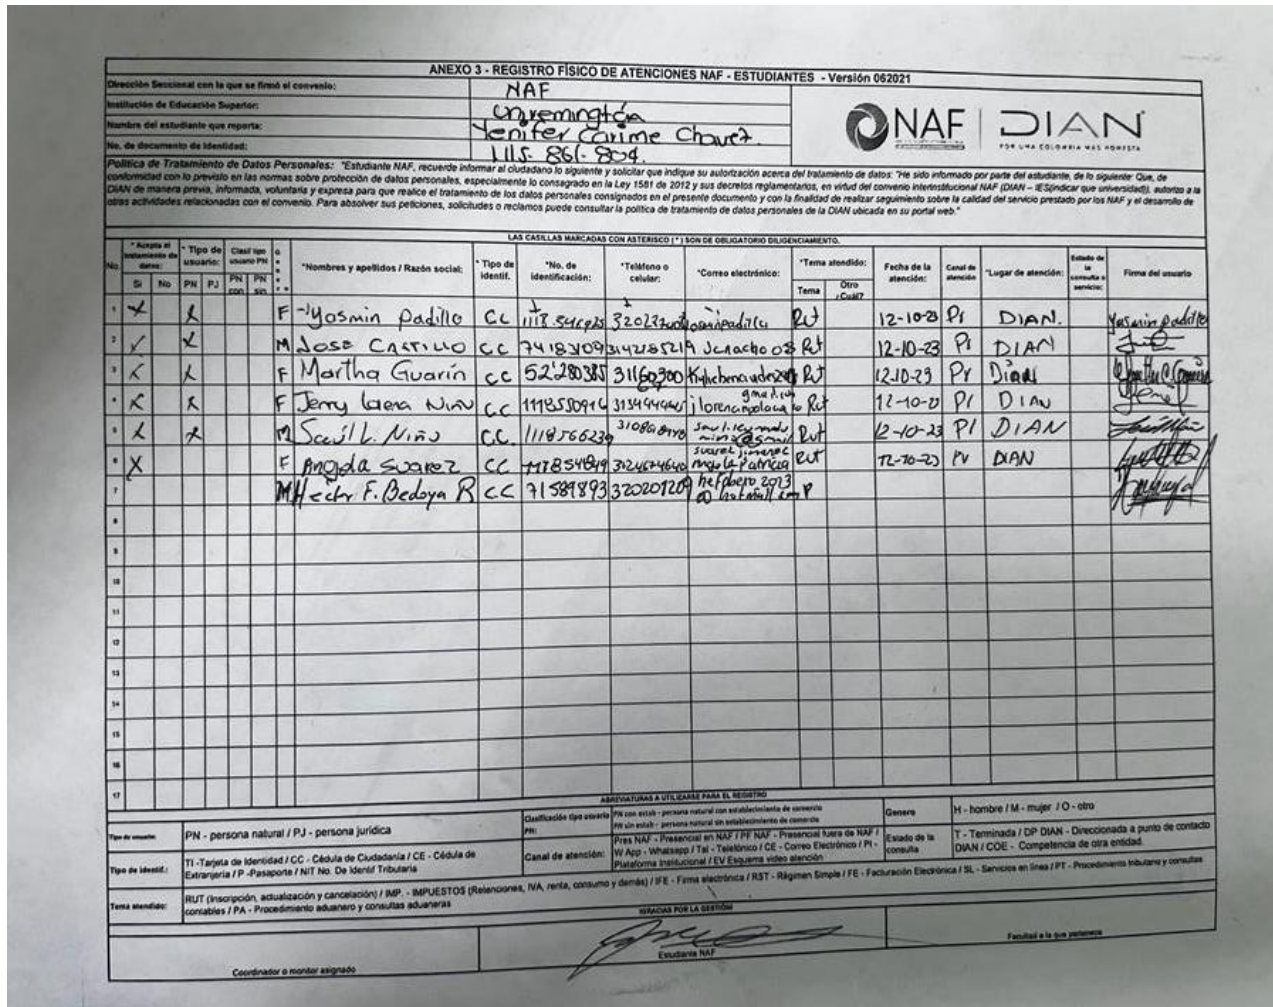 ANEXO 3 - REGISTRO FÍSICO DE ATENCIONES NAF - ESTUDIANTES - Versión 062021
Dirección Seccional con la que se firmó el convenio: NAF
Institución de Educación Superior: Uniremington
Nombre del estudiante que reporta: Yenifer Carime Chavez.
No. de documento de identidad:
NAF DIAN
POR UNA COLOMBIA MÁS HONESTA
Política de Tratamiento de Datos Personales: "Estudiante NAF, recuerde informar al ciudadano lo siguiente y solicitar que indique su autorización acerca del tratamiento de datos: "He sido informado por parte del estudiante, de lo siguiente: Que, de
conformidad con lo previsto en las normas sobre protección de datos personales, especialmente lo consagrado en la Ley 1581 de 2012 y sus decretos reglamentarios, en virtud del convenio interinstitucional NAF (DIAN – IES(indicar que universidad)), autorizo a la
DIAN de manera previa, informada, voluntaria y expresa para que realice el tratamiento de los datos personales consignados en el presente documento y con la finalidad de realizar seguimiento sobre la calidad del servicio prestado por los NAF y el desarrollo de
otras actividades relacionadas con el convenio. Para absolver sus peticiones, solicitudes o reclamos puede consultar la política de tratamiento de datos personales de la DIAN ubicada en su portal web."
LAS CASILLAS MARCADAS CON ASTERISCO (*) SON DE OBLIGATORIO DILIGENCIAMIENTO.
No. * Acepta el tratamiento de datos: * Tipo de usuario: Clasif tipo usuario PN *Nombres y apellidos / Razón social: * Tipo de identif. *No. de identificación: *Teléfono o celular: *Correo electrónico: *Tema atendido: Fecha de la atención: Canal de atención *Lugar de atención: Estado de la consulta o servicio: Firma del usuario
Si No PN PJ PN con PN sin Tema Otro ¿Cuál?
1 X X F Yosmin Padilla CC Rut 12-10-23 Pr DIAN. Yasmin Padilla
2 X M JOSE CASTILLO CC 74183109 3142185219 Rut 12-10-23 Pr DIAN
3 X F Martha Guarín CC 52'280385 Rut 12-10-23 Pr Dian
4 X X F Jerry Niño CC Rut 12-10-23 Pr DIAN
5 X X M Saúl L. Niño CC. Rut 12-10-23 Pr DIAN
6 X F Angela Suarez CC Rut 12-10-23 Pr DIAN
7 M Hector F. Bedoya R CC 71589893 320201209
8
9
10
11
12
13
14
15
16
17
ABREVIATURAS A UTILIZARSE PARA EL REGISTRO
Tipo de usuario: PN - persona natural / PJ - persona jurídica
Clasificación tipo usuario PN: PN con estab - persona natural con establecimiento de comercio
PN sin estab - persona natural sin establecimiento de comercio
Genero H - hombre / M - mujer / O - otro
Tipo de identif.: TI -Tarjeta de Identidad / CC - Cédula de Ciudadanía / CE - Cédula de
Extranjería / P -Pasaporte / NIT No. De Identif Tributaria
Canal de atención: Pres NAF - Presencial en NAF / PF NAF - Presencial fuera de NAF /
W App - Whatsapp / Tel - Telefónico / CE - Correo Electrónico / PI -
Plataforma Institucional / EV Esquema video atención
Estado de la consulta T - Terminada / DP DIAN - Direccionada a punto de contacto
DIAN / COE - Competencia de otra entidad.
Tema atendido: RUT (Inscripción, actualización y cancelación) / IMP. - IMPUESTOS (Retenciones, IVA, renta, consumo y demás) / IFE - Firma electrónica / RST - Régimen Simple / FE - Facturación Electrónica / SL - Servicios en línea / PT - Procedimiento tributario y consultas
contables / PA - Procedimiento aduanero y consultas aduaneras
!GRACIAS POR LA GESTIÓN!
Coordinador o monitor asignado
Estudiante NAF
Facultad a la que pertenece